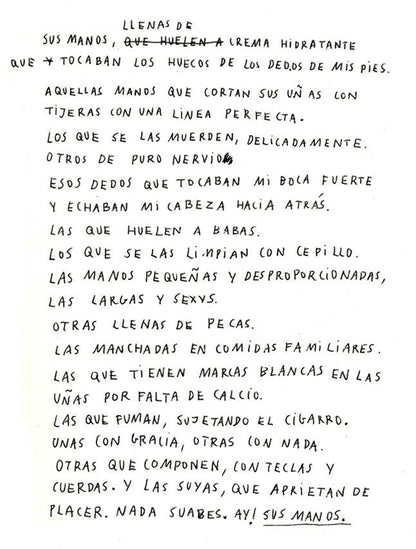 LLENAS DE
SUS MANOS, QUE HUELEN A CREMA HIDRATANTE
QUE Y TOCABAN LOS HUECOS DE LOS DEDOS DE MIS PIES.
AQUELLAS MANOS QUE CORTAN SUS UÑAS CON
TIJERAS CON UNA LINEA PERFECTA.
LOS QUE SE LAS MUERDEN, DELICADAMENTE.
OTROS DE PURO NERVIO
ESOS DEDOS QUE TOCABAN MI BOCA FUERTE
Y ECHABAN MI CABEZA HACIA ATRÁS.
LAS QUE HUELEN A BABAS.
LOS QUE SE LAS LIMPIAN CON CEPILLO.
LAS MANOS PEQUEÑAS Y DESPROPORCIONADAS,
LAS LARGAS Y SEXYS.
OTRAS LLENAS DE PECAS.
LAS MANCHADAS EN COMIDAS FAMILIARES.
LAS QUE TIENEN MARCAS BLANCAS EN LAS
UÑAS POR FALTA DE CALCIO.
LAS QUE FUMAN, SUJETANDO EL CIGARRO.
UNAS CON GRACIA, OTRAS CON NADA.
OTRAS QUE COMPONEN, CON TECLAS Y
CUERDAS. Y LAS SUYAS, QUE APRIETAN DE
PLACER. NADA SUABES. AY! SUS MANOS.